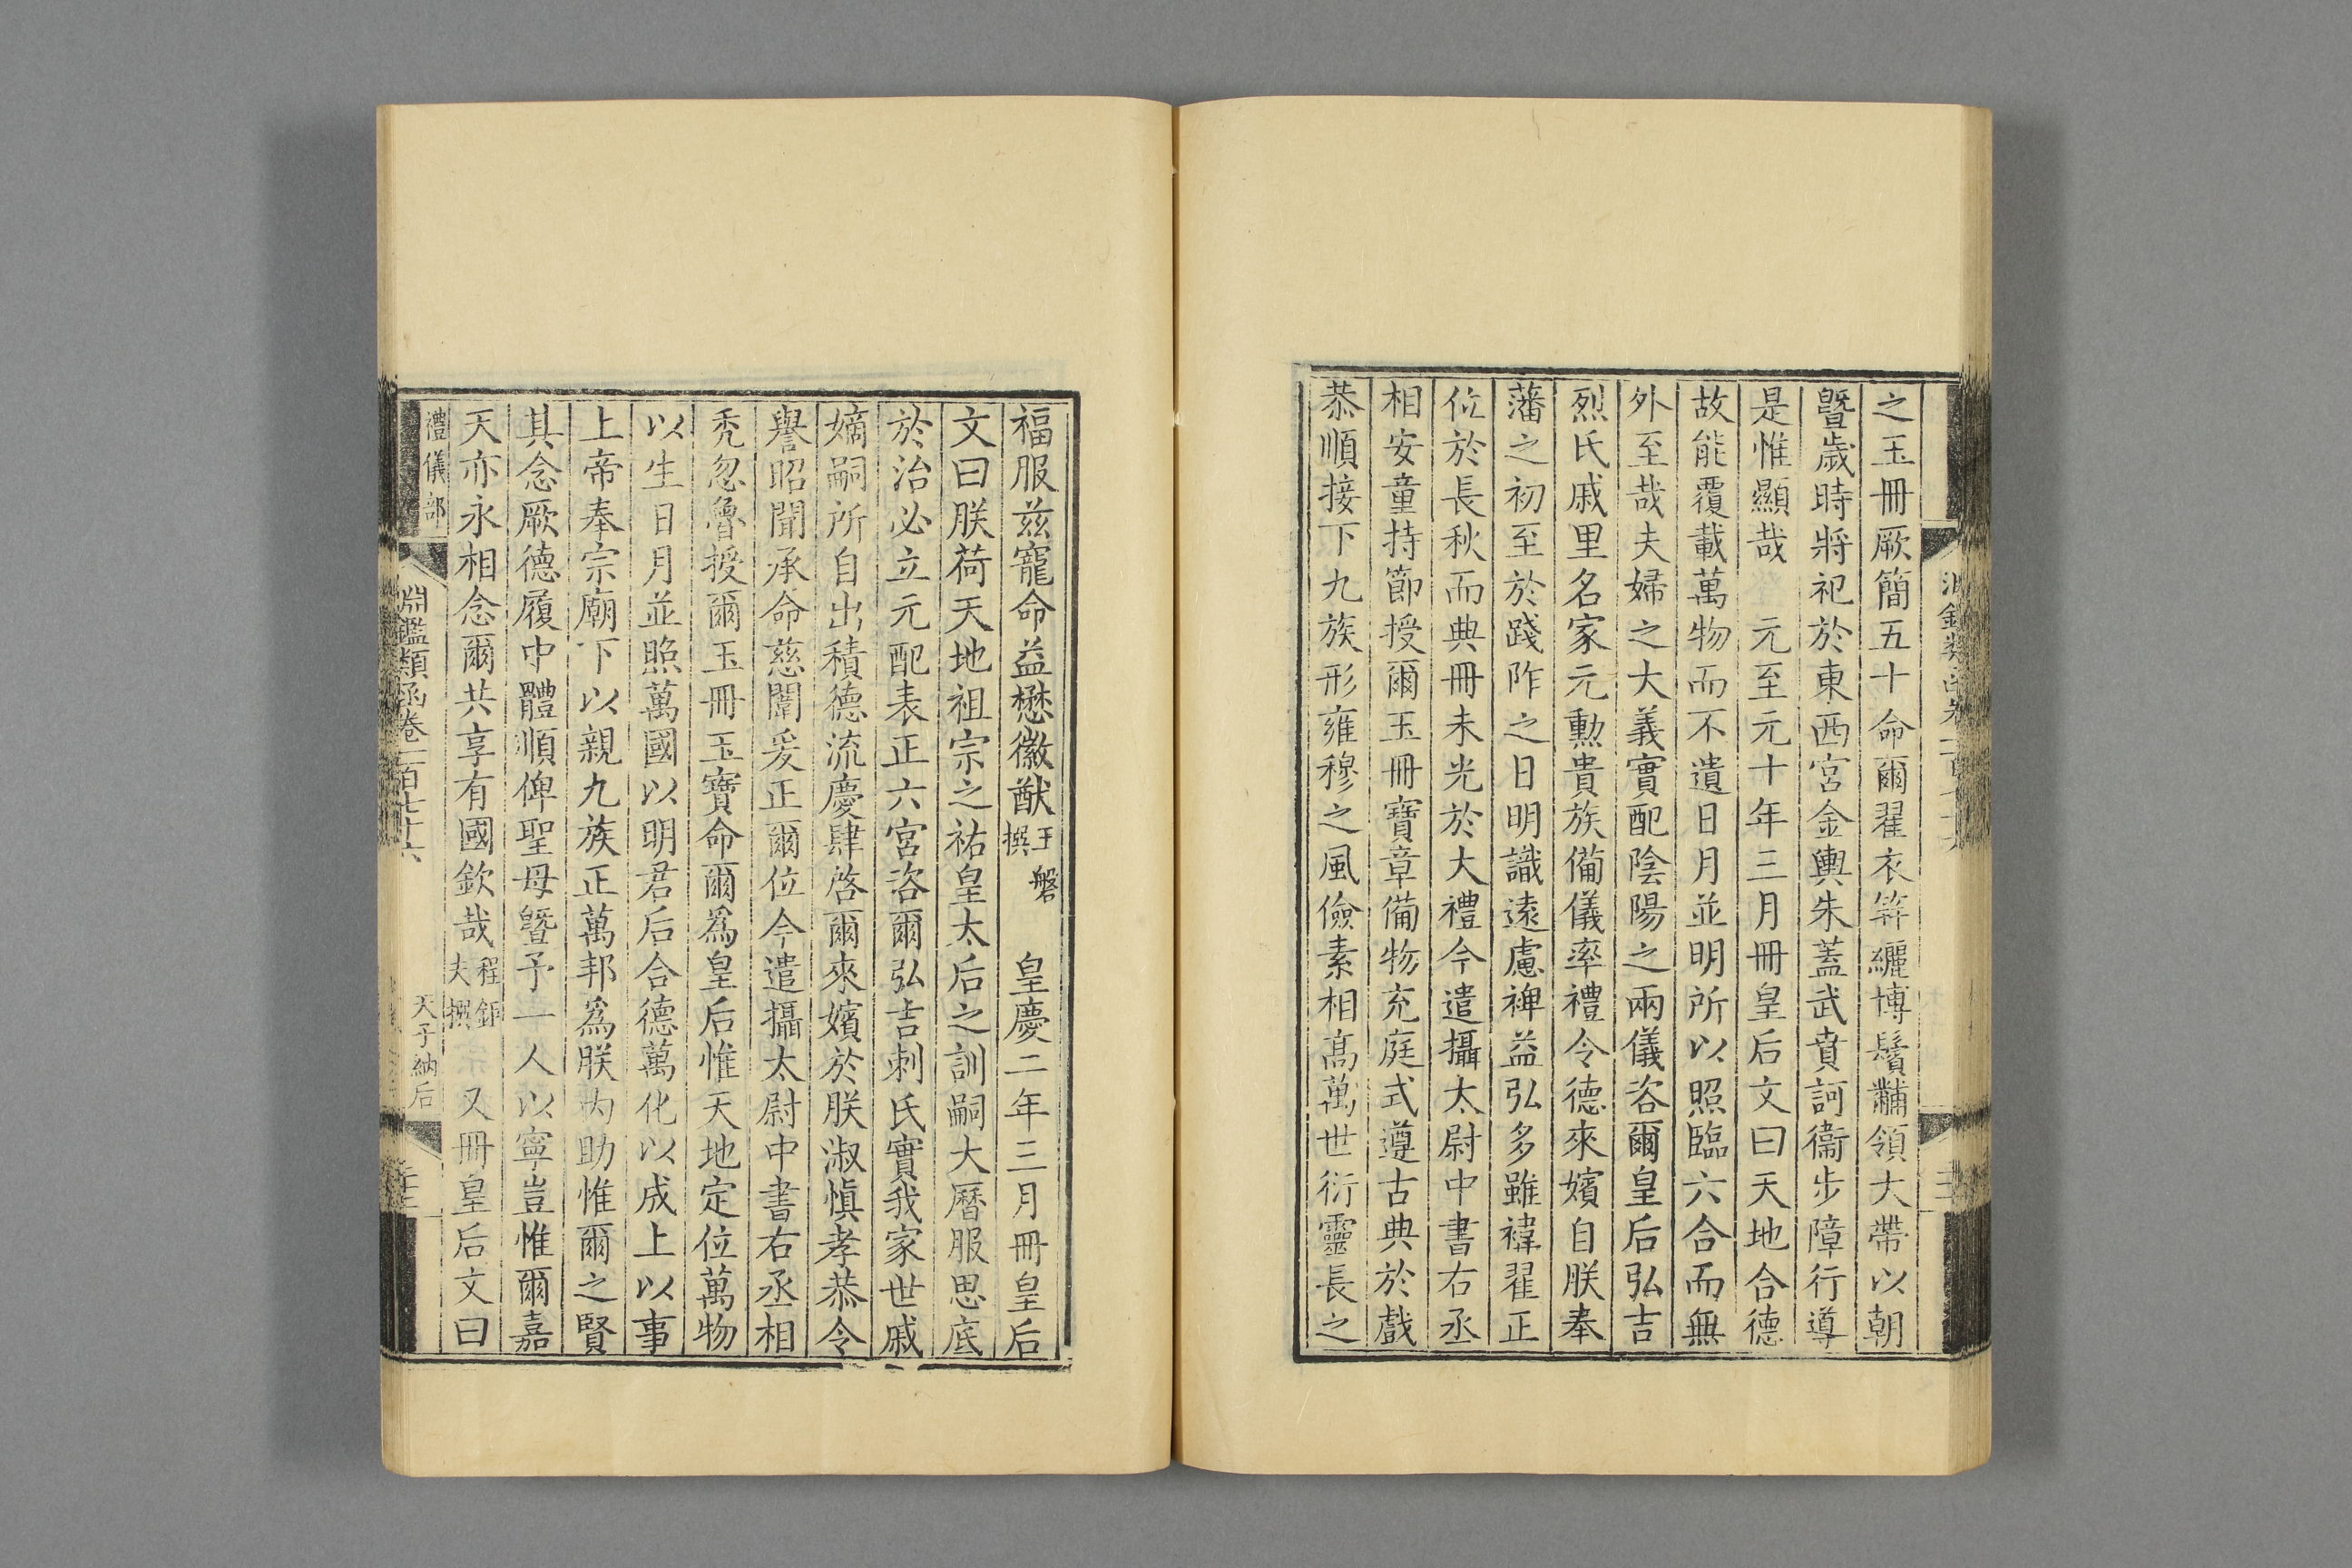 之玉冊厥簡五十命爾翟衣笄纚博鬢黼領大帶以朝
曁歲時將祀於東西宮金輿朱蓋武賁訶衞步障行導
是惟顯哉　元至元十年三月冊皇后文曰天地合德
故能覆載萬物而不遺日月並明所以照臨六合而無
外至哉夫婦之大義實配陰陽之兩儀咨爾皇后弘吉
烈氏戚里名家元勳貴族備儀率禮令德來嬪自朕奉
藩之初至於踐阼之日明識遠慮裨益弘多雖褘翟正
位於長秋而典冊未光於大禮今遣攝太尉中書右丞
相安童持節授爾玉冊寶章備物充庭式遵古典於戲
恭順接下九族形雍穆之風儉素相高萬世衍靈長之
福服兹寵命益懋徽猷王磐撰　皇慶二年三月冊皇后
文曰朕荷天地祖宗之祐皇太后之訓嗣大曆服思底
於治必立元配表正六宮咨爾弘吉剌氏實我家世戚
嫡嗣所自出積德流慶肆啓爾來嬪於朕淑愼孝恭令
譽昭聞承命慈闈爰正爾位今遣攝太尉中書右丞相
禿忽魯授爾玉冊玉寶命爾爲皇后惟天地定位萬物
以生日月並照萬國以明君后合德萬化以成上以事
上帝奉宗廟下以親九族正萬邦爲朕內助惟爾之賢
其念厥德履中體順俾聖母曁予一人以寧豈惟爾嘉
天亦永相念爾共享有國欽哉程鉅夫撰　又冊皇后文曰
禮儀部
淵鑑類函卷一百七十六
天子納后